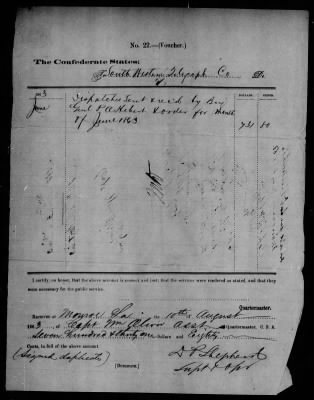 No. 22.—(Voucher.)
The Confederate States;
To South Western Telegraph Co Dr.
DOLLARS. CENTS.
1863
June Dispatches sent & rec'd by Brig
Genl P. O. Hebert & order for Month
of June 1863 731 80
I certify, on honor, that the above account is correct and just; that the services were rendered as stated, and that they
were necessary for the public service.
Quartermaster.
RECEIVED at Monroe La 10th August
1863, of Capt Wm Oliver Asst Quartermaster, C. S. A.
Seven hundred & thirty one Dollars and Eighty
Cents, in full of the above account
(Signed duplicate) D. P. Shepherd
[DUPLICATE.] Supt & Opr